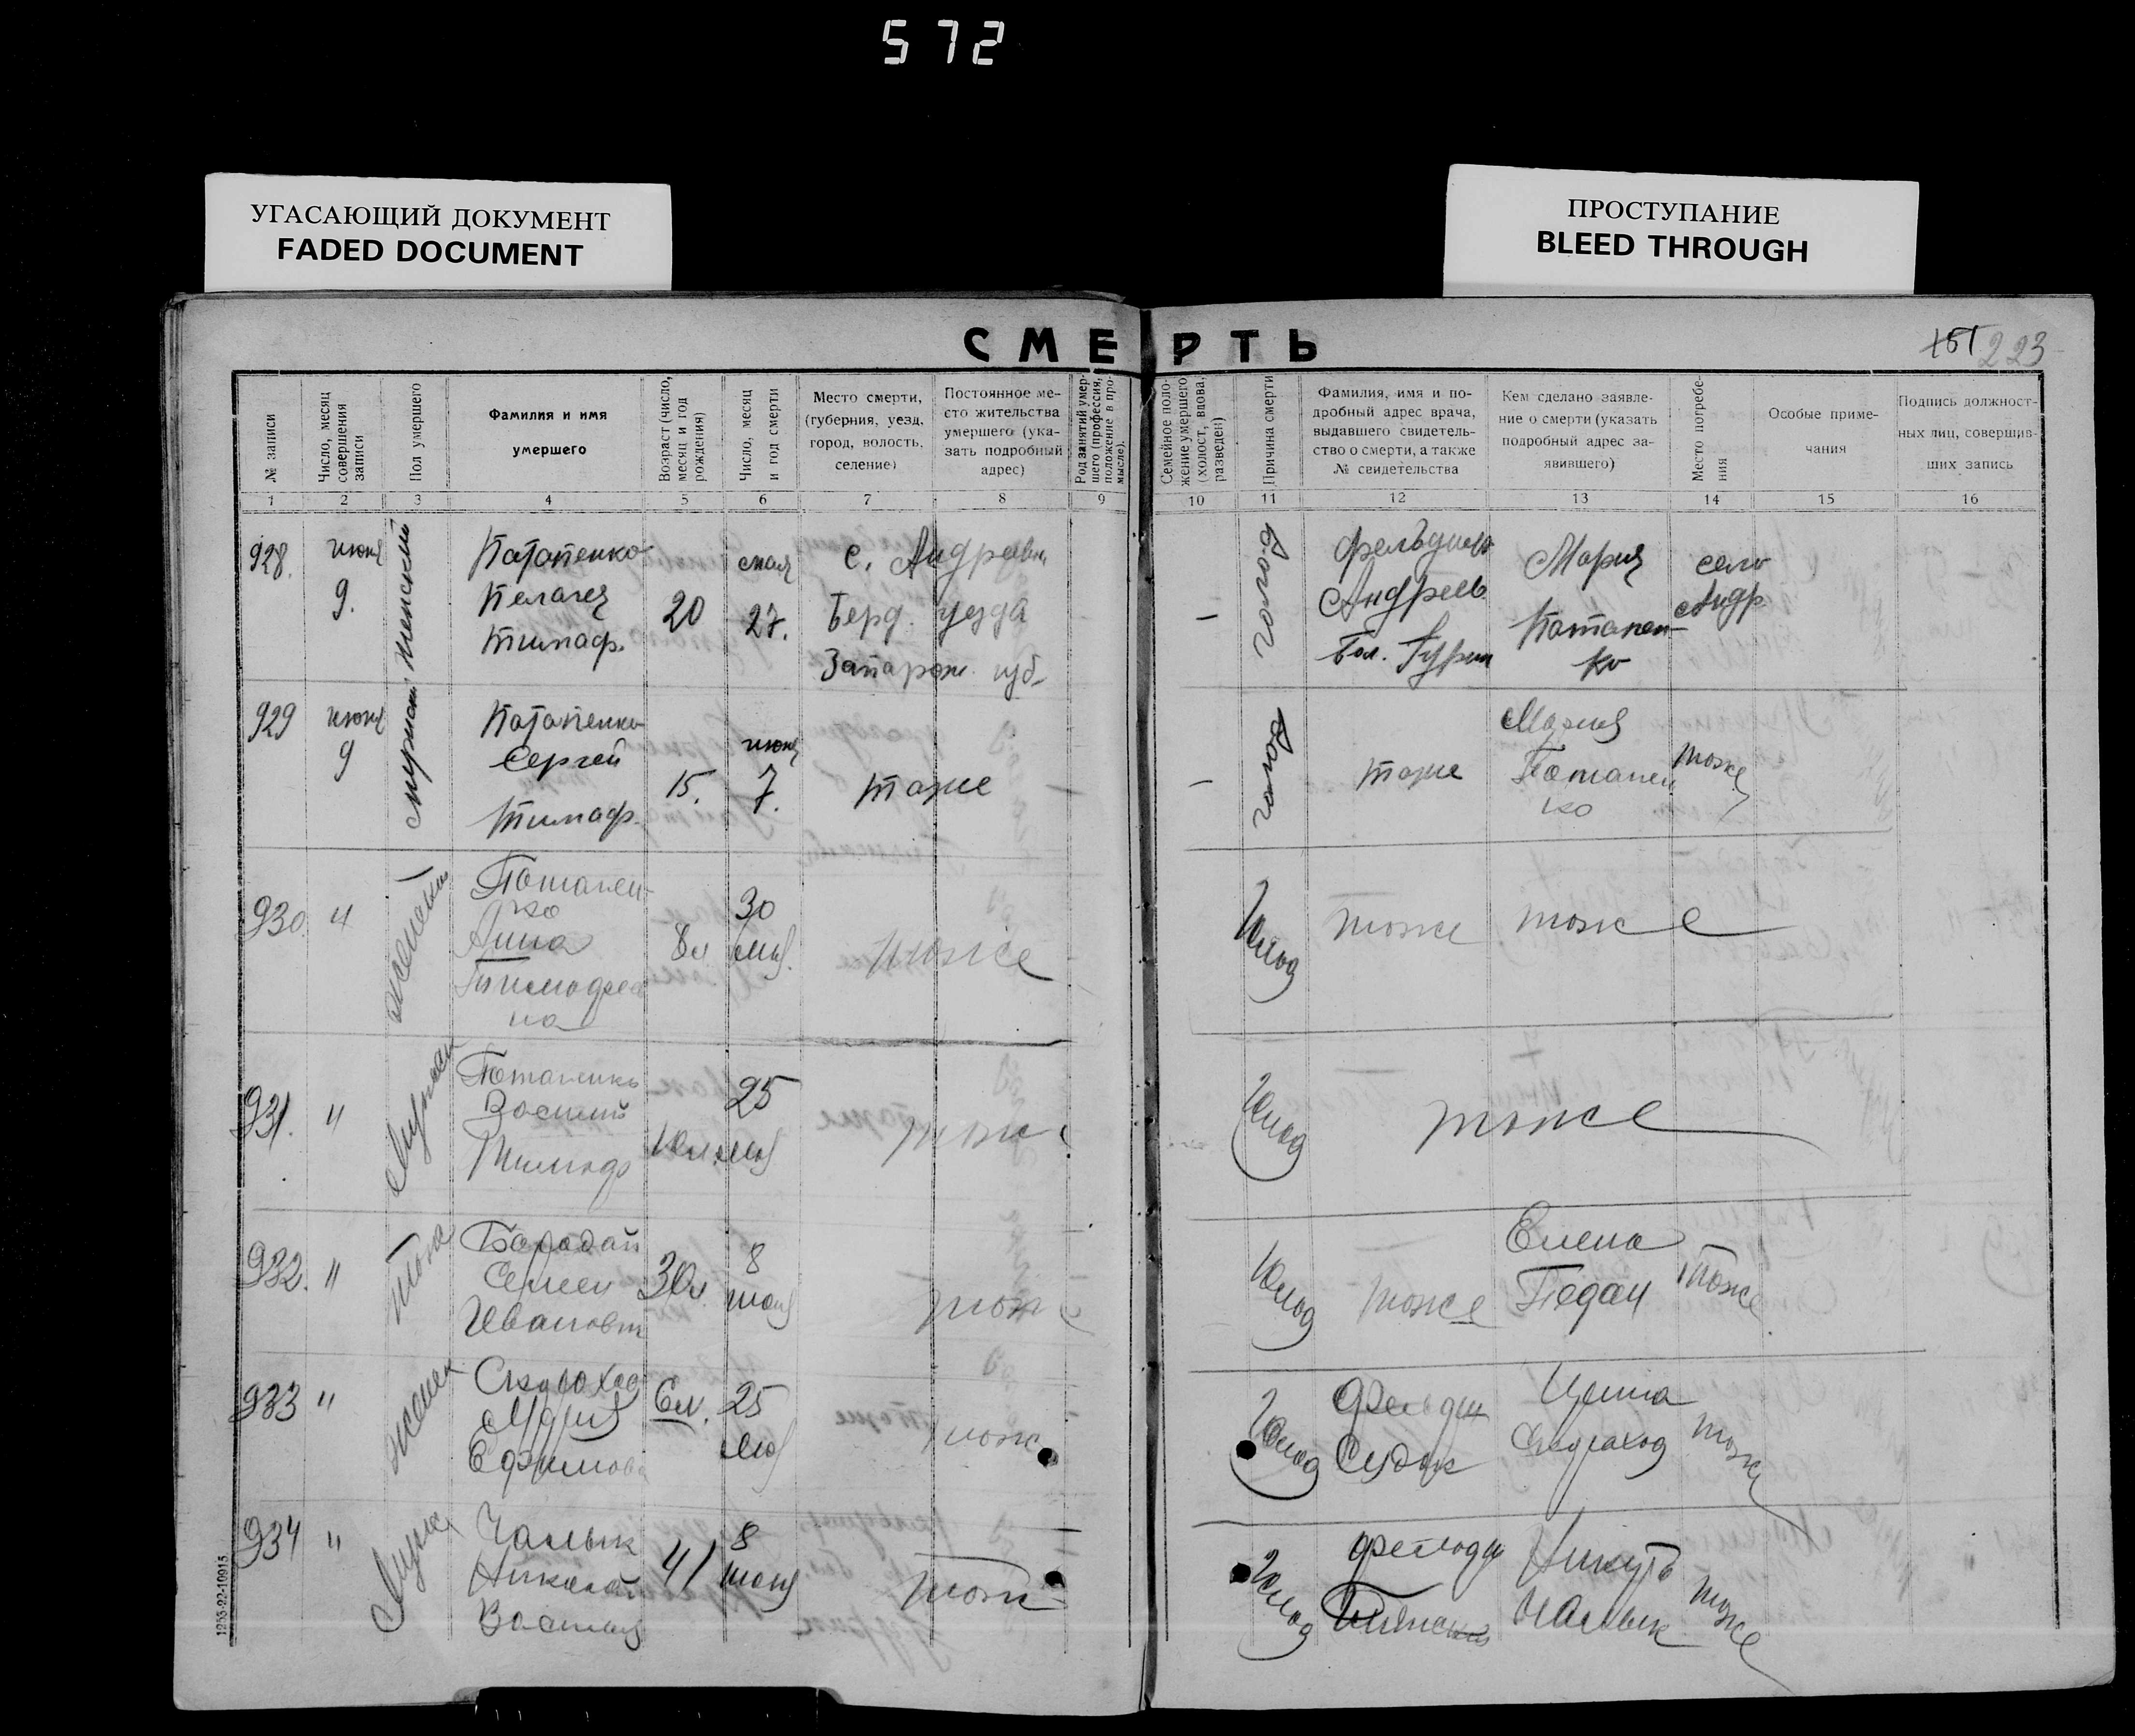 572
УГАСАЮЩИЙ ДОКУМЕНТ
FADED DOCUMENT
ПРОСТУПАНИЕ
BLEED THROUGH
СМЕРТЬ
151 223
№ записи
Число, месяц совершения записи
Пол умершего
Фамилия и имя
умершего
Возраст (число, месяц и год рождения)
Число, месяц и год смерти
Место смерти,
(губерния, уезд,
город, волость,
селение)
Постоянное ме-
сто жительства
умершего (ука-
зать подробный
адрес)
Род занятий умер-
шего (профессия,
положение в про-
мысле).
Семейное поло-
жение умершего
(холост, вдова,
разведен)
Причина смерти
Фамилия, имя и по-
дробный адрес врача,
выдавшего свидетель-
ство о смерти, а также
№ свидетельства
Кем сделано заявле-
ние о смерти (указать
подробный адрес за-
явившего)
Место погребе-
ния
Особые приме-
чания
Подпись должност-
ных лиц, совершив-
ших запись
1 2 3 4 5 6 7 8 9 10 11 12 13 14 15 16
928.
июня
9.
женский
Патапенко
Пелагея
Тимаф.
20
мая
27.
с. Андреевк
Берд. уезда
Запарож. губ.
-
Голод
фельдшер
Андреев.
Бол. Гурин
Мария
Потапен-
ко
село
Андр.
929
июня
9
мужск
Патапенко
Сергей
Тимаф.
15.
июня
7.
тоже
-
Голод
тоже
Мария
Потапен
ко
тоже
930.
"
женский
Потапен-
ко
Анна
Тимофее
на
8л
30
мая
тоже
Голод
тоже
тоже
931.
"
Мужск
Потапенко
Василий
Тимоф
10л.
25
мая
тоже
Голод
тоже
932.
"
тоже
Семен
Иванович
30л.
8
июня
тоже
Голод
тоже
Елена
Педан
тоже
933
"
женск
Скороход
Мария
Ефимова
6л.
25
мая
тож
Голод
Фельдш
Скороход
тоже
934
"
Мужс
Чалык
Николай
Василий
41
8
июня
тож
Голод
Чалык
тоже
1253-22-10915